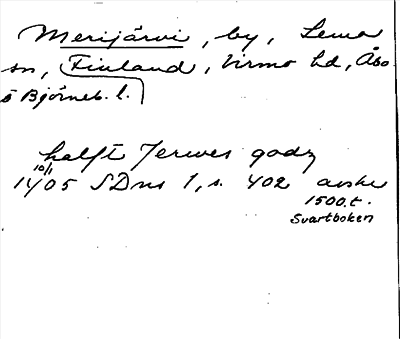 Merijärvi, by, Lemo
sn, Finland, Virmo hd, Åbo
o Björneb. l.
halft Jerwes godz
10/1
1405 SDns 1, s. 402 avskr
1500.t.
Svartboken